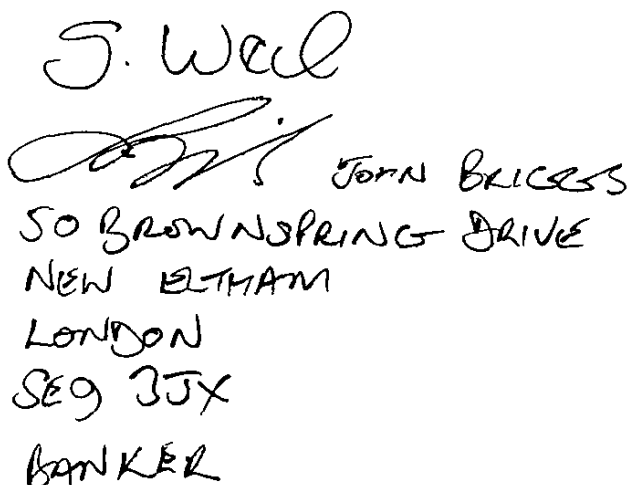 S. Weil
JOHN BRIGGS
50 BROWNSPRING DRIVE
NEW ELTHAM
LONDON
SE9 3JX
BANKER